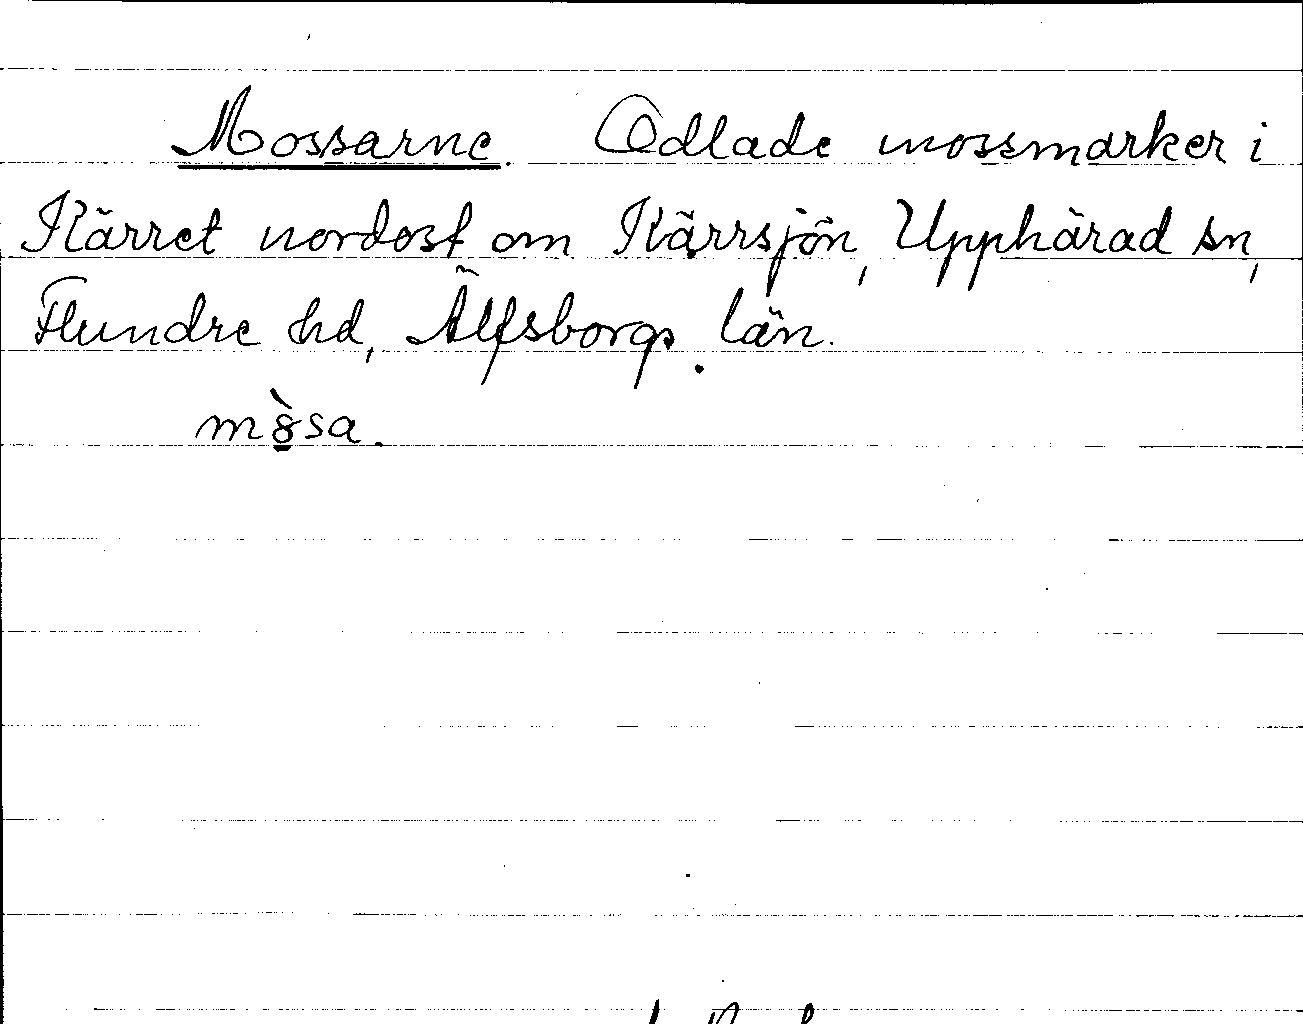 Mossarne. Odlade mossmarker i
Kärret nordost om Kärrsjön, Upphärad sn,
Flundre hd, Älfsborgs län.